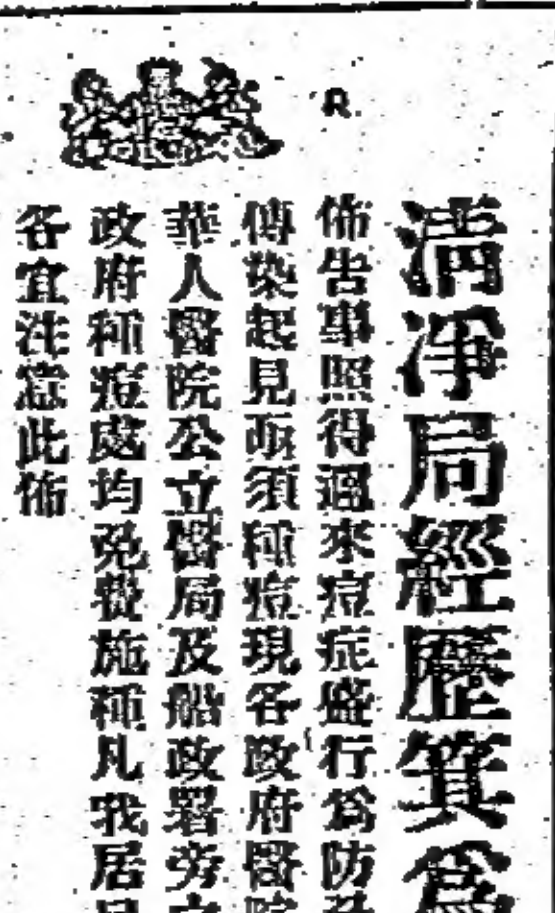 R
清淨局經歷箕爲
佈告事照得邇來痘症盛行爲防
傳染起見亟須種痘現各政府醫院
華人醫院公立醫局及船政署旁
政府種痘處均免費施種凡我居
各宜注意此佈